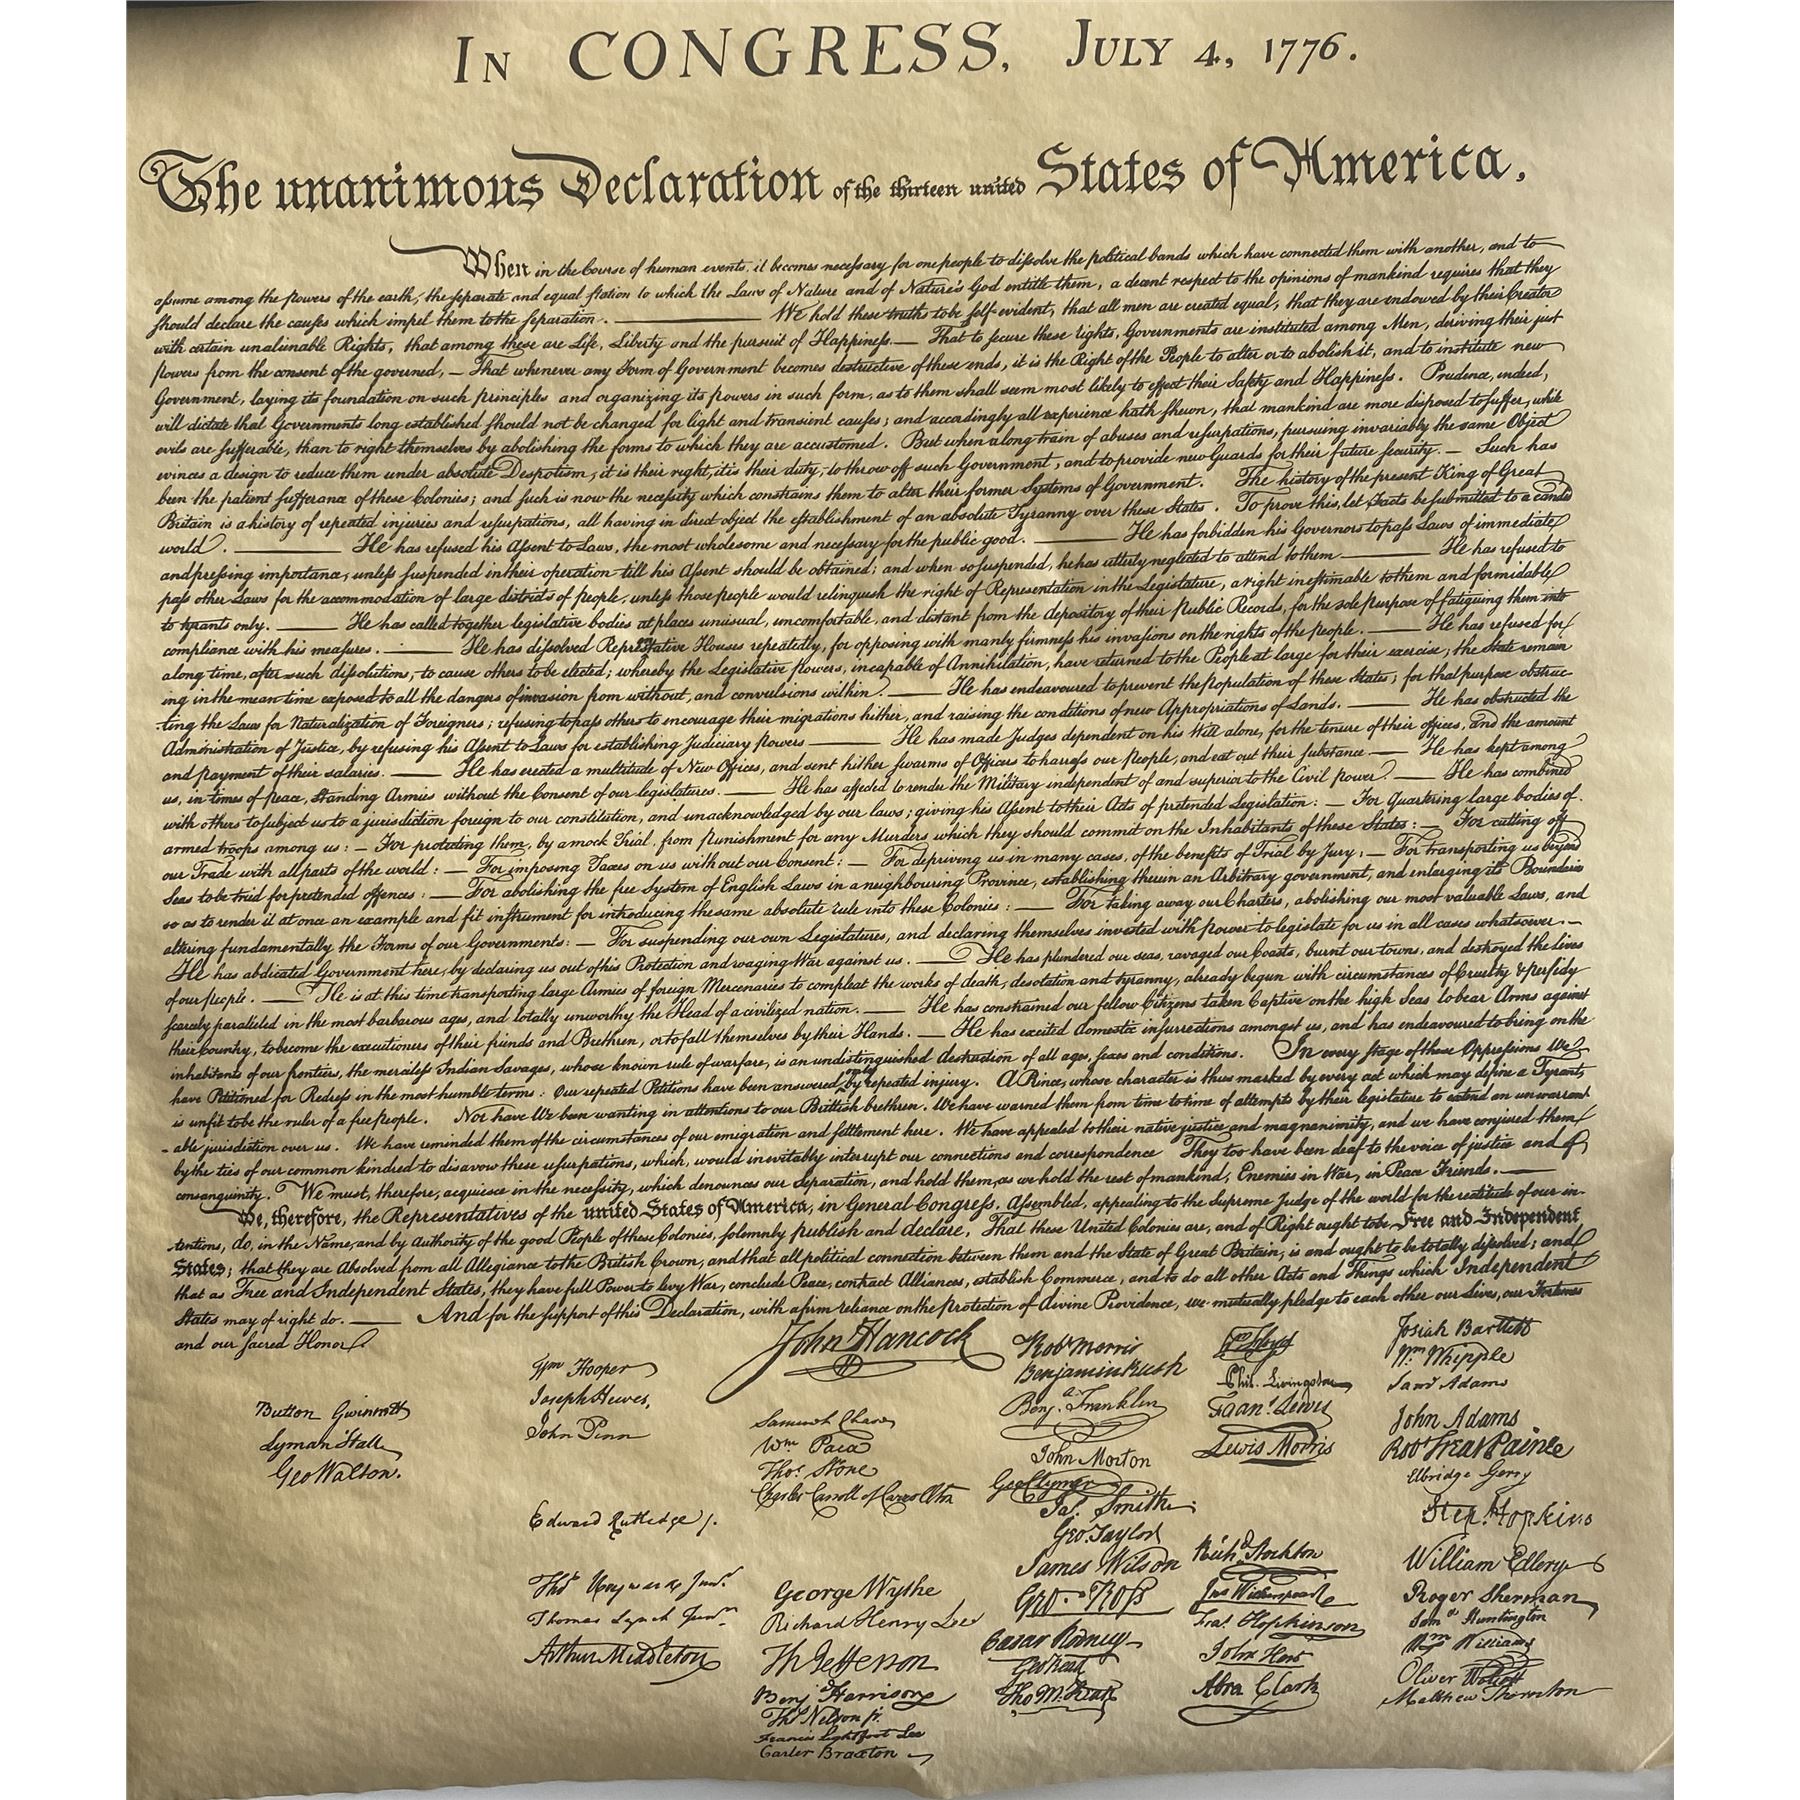 IN CONGRESS, JULY 4, 1776.
The unanimous Declaration of the thirteen united States of America,
When in the Course of human events, it becomes necessary for one people to dissolve the political bands which have connected them with another, and to
assume among the powers of the earth, the separate and equal station to which the Laws of Nature and of Nature's God entitle them, a decent respect to the opinions of mankind requires that they
should declare the causes which impel them to the separation. — We hold these truths to be self-evident, that all men are created equal, that they are endowed by their Creator
with certain unalienable Rights, that among these are Life, Liberty and the pursuit of Happiness. — That to secure these rights, Governments are instituted among Men, deriving their just
powers from the consent of the governed, — That whenever any Form of Government becomes destructive of these ends, it is the Right of the People to alter or to abolish it, and to institute new
Government, laying its foundation on such principles and organizing its powers in such form, as to them shall seem most likely to effect their Safety and Happiness. Prudence, indeed,
will dictate that Governments long established should not be changed for light and transient causes; and accordingly all experience hath shewn, that mankind are more disposed to suffer, while
evils are sufferable, than to right themselves by abolishing the forms to which they are accustomed. But when a long train of abuses and usurpations, pursuing invariably the same Object
evinces a design to reduce them under absolute Despotism, it is their right, it is their duty, to throw off such Government, and to provide new Guards for their future security. — Such has
been the patient sufferance of these Colonies; and such is now the necessity which constrains them to alter their former Systems of Government. The history of the present King of Great
Britain is a history of repeated injuries and usurpations, all having in direct object the establishment of an absolute Tyranny over these States. To prove this, let Facts be submitted to a candid
world. — He has refused his Assent to Laws, the most wholesome and necessary for the public good. — He has forbidden his Governors to pass Laws of immediate
and pressing importance, unless suspended in their operation till his Assent should be obtained; and when so suspended, he has utterly neglected to attend to them — He has refused to
pass other Laws for the accommodation of large districts of people, unless those people would relinquish the right of Representation in the Legislature, a right inestimable to them and formidable
to tyrants only. — He has called together legislative bodies at places unusual, uncomfortable, and distant from the depository of their Public Records, for the sole purpose of fatiguing them into
compliance with his measures. — He has dissolved Representative Houses repeatedly, for opposing with manly firmness his invasions on the rights of the people. — He has refused for
a long time, after such dissolutions, to cause others to be elected; whereby the Legislative powers, incapable of Annihilation, have returned to the People at large for their exercise; the State remain
ing in the mean time exposed to all the dangers of invasion from without, and convulsions within. — He has endeavoured to prevent the population of these States; for that purpose obstruc
ting the Laws for Naturalization of Foreigners; refusing to pass others to encourage their migrations hither, and raising the conditions of new Appropriations of Lands. — He has obstructed the
Administration of Justice, by refusing his Assent to Laws for establishing Judiciary powers — He has made Judges dependent on his Will alone, for the tenure of their offices, and the amount
and payment of their salaries. — He has erected a multitude of New Offices, and sent hither swarms of Officers to harrass our People, and eat out their substance. — He has kept among
us, in times of peace, Standing Armies without the Consent of our legislatures. — He has affected to render the Military independent of and superior to the Civil power. — He has combined
with others to subject us to a jurisdiction foreign to our constitution, and unacknowledged by our laws; giving his Assent to their Acts of pretended Legislation: — For Quartering large bodies of
armed troops among us: — For protecting them, by a mock Trial, from Punishment for any Murders which they should commit on the Inhabitants of these States: — For cutting off
our Trade with all parts of the world: — For imposing Taxes on us without our Consent: — For depriving us in many cases, of the benefits of Trial by Jury: — For transporting us beyond
Seas to be tried for pretended offences: — For abolishing the free System of English Laws in a neighbouring Province, establishing therein an Arbitrary government, and enlarging its Boundaries
so as to render it at once an example and fit instrument for introducing the same absolute rule into these Colonies: — For taking away our Charters, abolishing our most valuable Laws, and
altering fundamentally the Forms of our Governments: — For suspending our own Legislatures, and declaring themselves invested with power to legislate for us in all cases whatsoever. —
He has abdicated Government here, by declaring us out of his Protection and waging War against us. — He has plundered our seas, ravaged our Coasts, burnt our towns, and destroyed the lives
of our people. — He is at this time transporting large Armies of foreign Mercenaries to compleat the works of death, desolation and tyranny, already begun with circumstances of Cruelty & perfidy
scarcely paralleled in the most barbarous ages, and totally unworthy the Head of a civilized nation. — He has constrained our fellow Citizens taken Captive on the high Seas to bear Arms against
their Country, to become the executioners of their friends and Brethren, or to fall themselves by their Hands. — He has excited domestic insurrections amongst us, and has endeavoured to bring on the
inhabitants of our frontiers, the merciless Indian Savages, whose known rule of warfare, is an undistinguished destruction of all ages, sexes and conditions. In every stage of these Oppressions We
have Petitioned for Redress in the most humble terms: Our repeated Petitions have been answered only by repeated injury. A Prince, whose character is thus marked by every act which may define a Tyrant,
is unfit to be the ruler of a free people. Nor have We been wanting in attentions to our Brittish brethren. We have warned them from time to time of attempts by their legislature to extend an unwarrant
-able jurisdiction over us. We have reminded them of the circumstances of our emigration and settlement here. We have appealed to their native justice and magnanimity, and we have conjured them
by the ties of our common kindred to disavow these usurpations, which, would inevitably interrupt our connections and correspondence They too have been deaf to the voice of justice and of
consanguinity. We must, therefore, acquiesce in the necessity, which denounces our Separation, and hold them, as we hold the rest of mankind, Enemies in War, in Peace Friends. —
We, therefore, the Representatives of the united States of America, in General Congress, Assembled, appealing to the Supreme Judge of the world for the rectitude of our in-
tentions, do, in the Name, and by Authority of the good People of these Colonies, solemnly publish and declare, That these United Colonies are, and of Right ought to be Free and Independent
States; that they are Absolved from all Allegiance to the British Crown, and that all political connection between them and the State of Great Britain, is and ought to be totally dissolved; and
that as Free and Independent States, they have full Power to levy War, conclude Peace, contract Alliances, establish Commerce, and to do all other Acts and Things which Independent
States may of right do. — And for the support of this Declaration, with a firm reliance on the protection of divine Providence, we mutually pledge to each other our Lives, our Fortunes
and our sacred Honor.
Button Gwinnett
Lyman Hall
Geo Walton.
Wm Hooper
Joseph Hewes,
John Penn
Edward Rutledge /.
Thos Heyward Junr.
Thomas Lynch Junr.
Arthur Middleton
John Hancock
Samuel Chase
Wm Paca
Thos Stone
Charles Carroll of Carrollton
George Wythe
Richard Henry Lee
Th Jefferson
Benj Harrison
Thos Nelson jr.
Francis Lightfoot Lee
Carter Braxton
Robt Morris
Benjamin Rush
Benj. Franklin
John Morton
Geo Clymer
Jas. Smith
Geo. Taylor
James Wilson
Geo. Ross
Caesar Rodney
Geo Read
Tho M:Kean
Phil. Livingston
Frans. Lewis
Lewis Morris
Richd. Stockton
Jno Witherspoon
Fras. Hopkinson
John Hart
Abra Clark
Josiah Bartlett
Wm. Whipple
Saml Adams
John Adams
Robt Treat Paine
Elbridge Gerry
Step. Hopkins
William Ellery
Roger Sherman
Saml Huntington
Wm Williams
Oliver Wolcott
Matthew Thornton